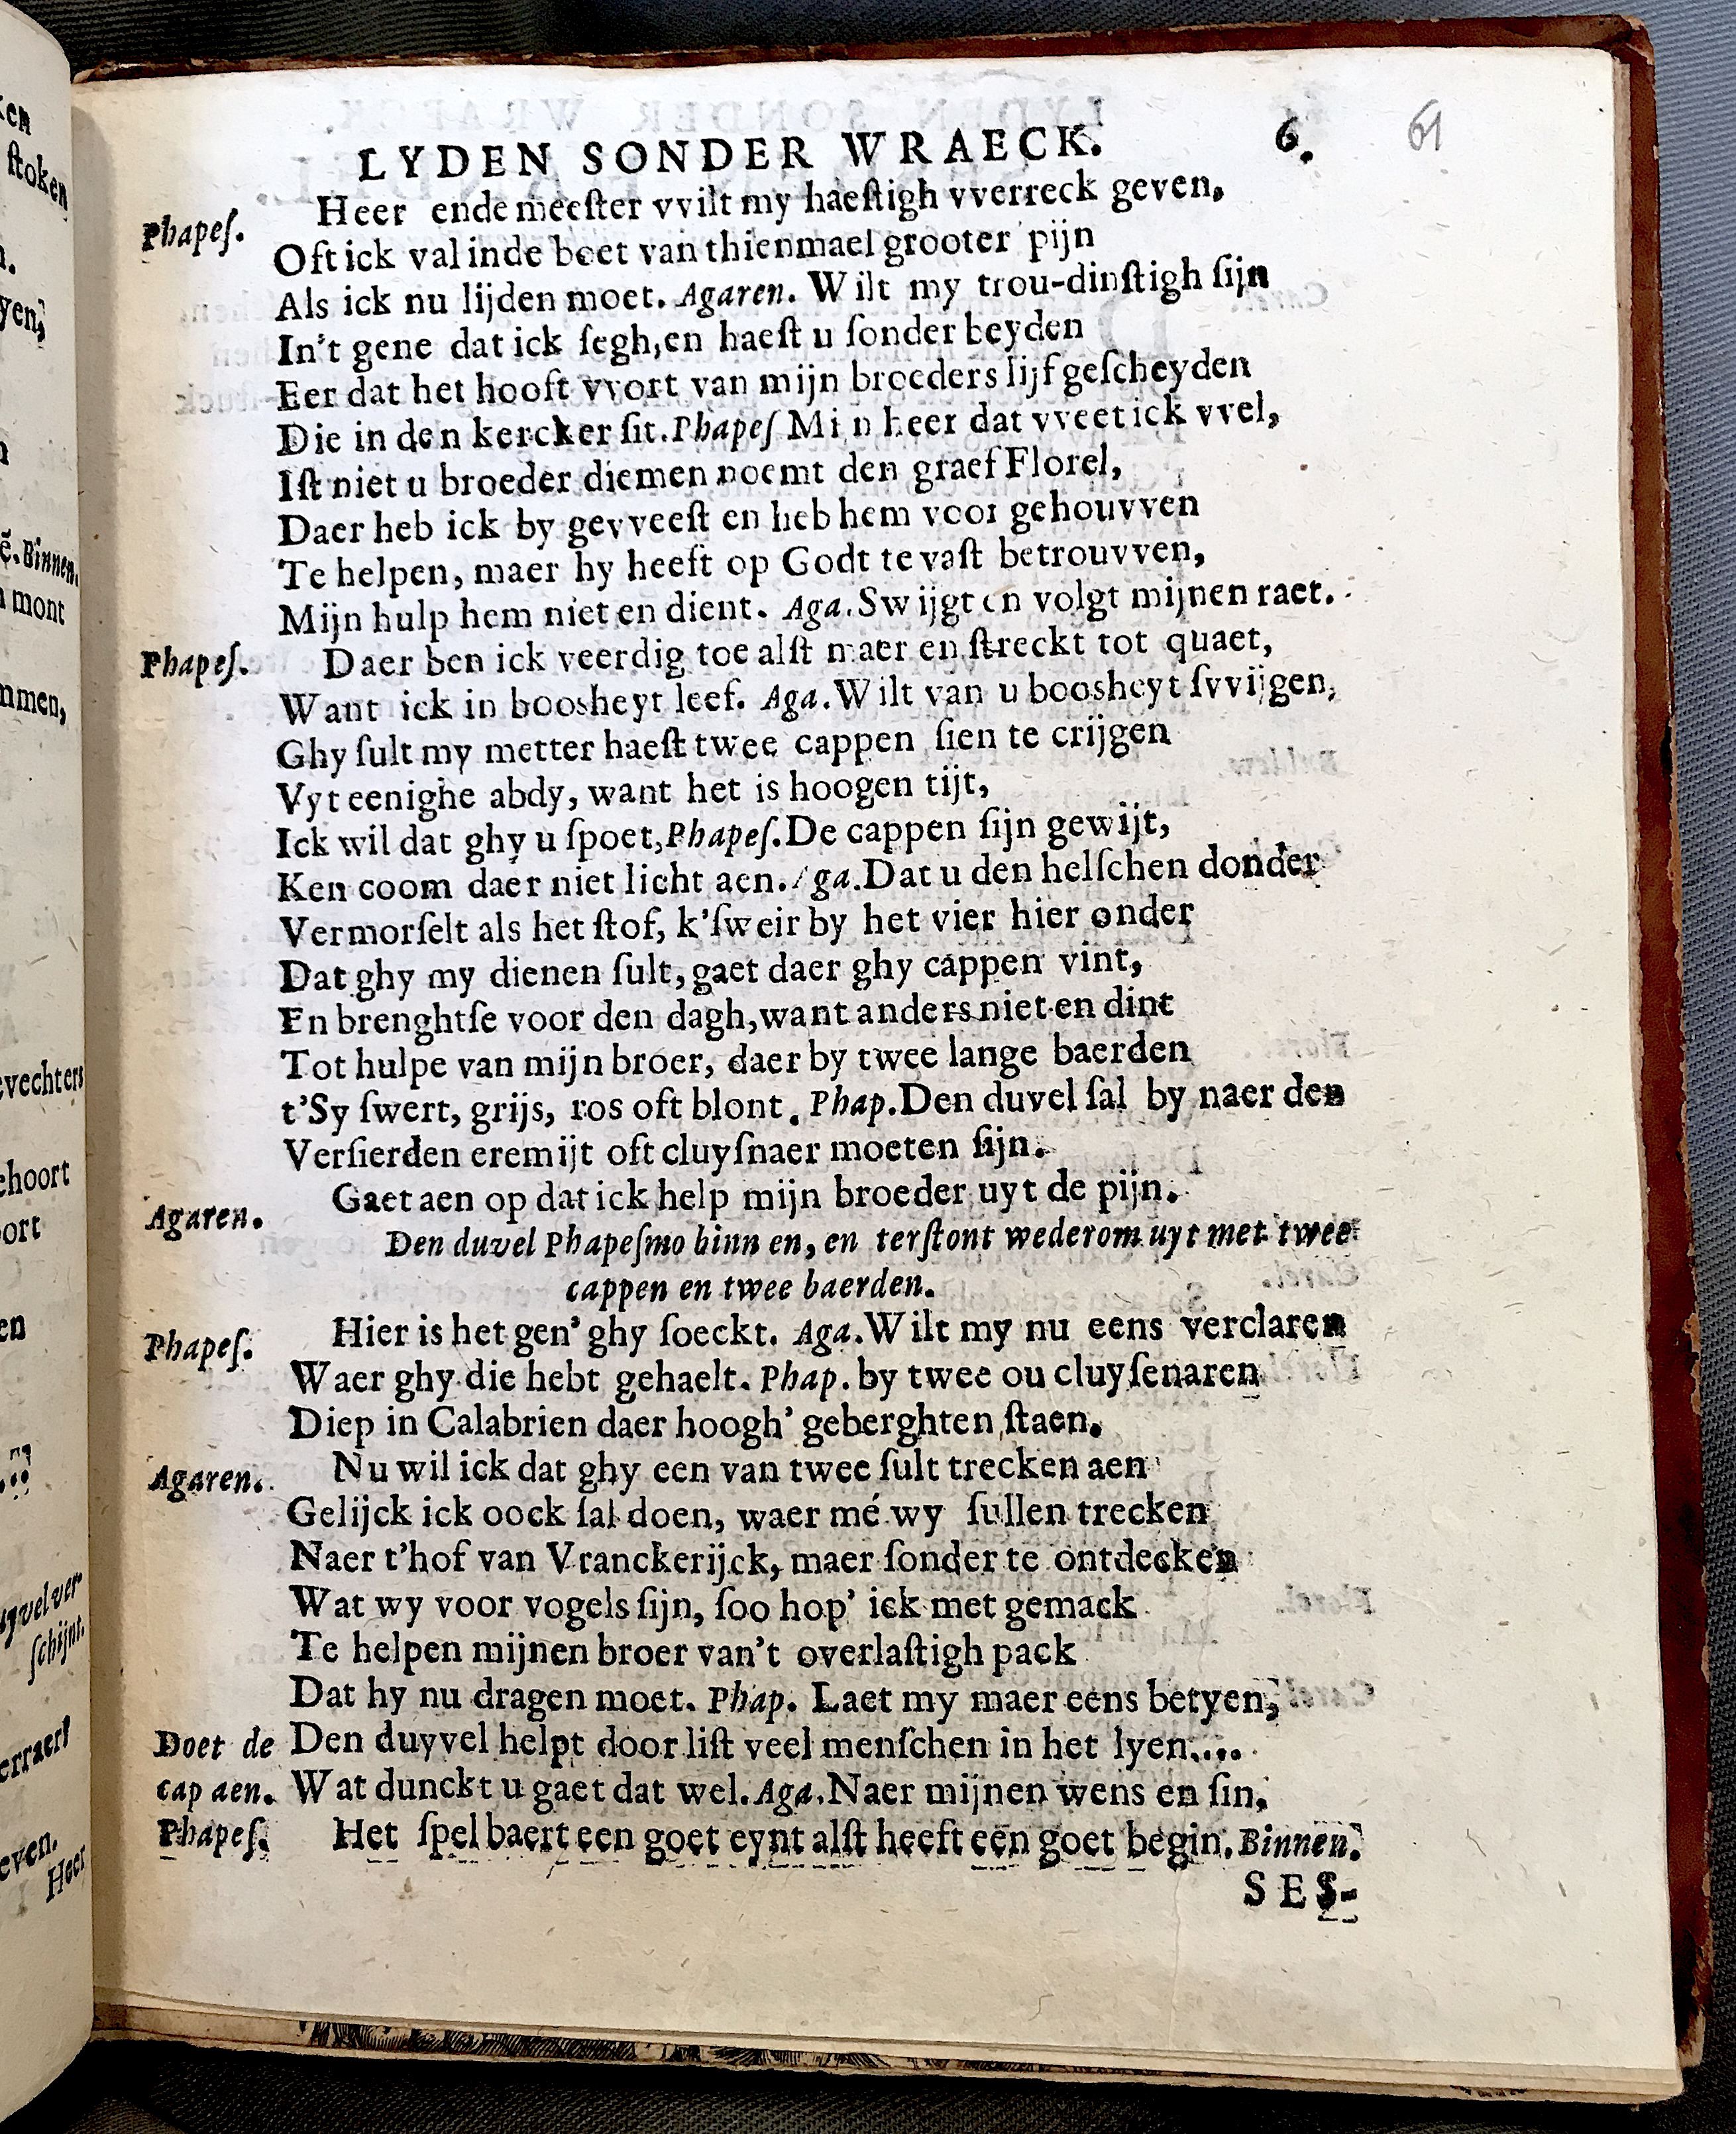 LYDEN SONDER WRAECK. 6. 61
Phapeſ. Heer ende meeſter vvilt my haeſtigh vverreck geven,
Oft ick val inde boet van thienmael grooter pijn
Als ick nu lijden moet. Agaren. Wilt my trou-dinſtigh ſijn
In't gene dat ick ſegh, en haeſt u ſonder beyden
Eer dat het hooft vvort van mijn broeders lijf geſcheyden
Die in den kercker ſit. Phapeſ Mi n heer dat vveet ick vvel,
Iſt niet u broeder diemen noemt den graef Florel,
Daer heb ick by gevveeſt en heb hem voor gehouvven
Te helpen, maer hy heeft op Godt te vaſt betrouvven,
Mijn hulp hem niet en dient. Aga. Swijgt en volgt mijnen raet.
Phapeſ. Daer ben ick veerdig toe alſt maer en ſtreckt tot quaet,
Want ick in boosheyt leef. Aga. Wilt van u boosheyt ſvvijgen,
Ghy ſult my metter haeſt twee cappen ſien te crijgen
Vyt eenighe abdy, want het is hoogen tijt,
Ick wil dat ghy u ſpoet, Phapeſ. De cappen ſijn gewijt,
Ken coom daer niet licht aen. Aga. Dat u den helſchen donder
Vermorſelt als het ſtof, k'ſweir by het vier hier onder
Dat ghy my dienen ſult, gaet daer ghy cappen vint,
En brenghtſe voor den dagh, want anders niet en dint
Tot hulpe van mijn broer, daer by twee lange baerden
t'Sy ſwert, grijs, ros oft blont. Phap. Den duvel ſal by naer den
Verſierden eremijt oft cluyſnaer moeten ſijn.
Agaren. Gaet aen op dat ick help mijn broeder uyt de pijn.
Den duvel Phapeſmo binn en, en terſtont wederom uyt met twee
cappen en twee baerden.
Phapeſ. Hier is het gen' ghy ſoeckt. Aga. Wilt my nu eens verclaren
Waer ghy die hebt gehaelt. Phap. by twee ou cluyſenaren
Diep in Calabrien daer hoogh' geberghten ſtaen.
Agaren. Nu wil ick dat ghy een van twee ſult trecken aen
Gelijck ick oock ſal doen, waer mé wy ſullen trecken
Naer t'hof van Vranckerijck, maer ſonder te ontdecken
Wat wy voor vogels ſijn, ſoo hop' ick met gemack
Te helpen mijnen broer van't overlaſtigh pack
Dat hy nu dragen moet. Phap. Laet my maer eens betyen,
Doet de Den duyvel helpt door liſt veel menſchen in het lyen....
cap aen. Wat dunckt u gaet dat wel. Aga. Naer mijnen wens en ſin,
Phapeſ. Het ſpel baert een goet eynt alſt heeft een goet begin. Binnen.
SES-